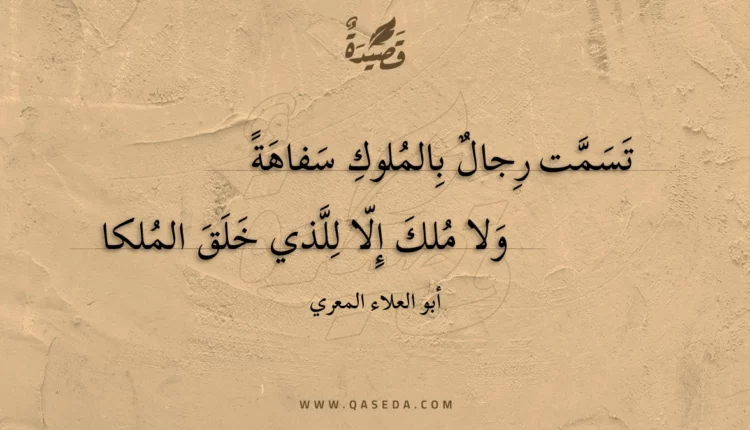 قَصِيدَةٌ
تَسَمَّت رِجالٌ بِالمُلوكِ سَفاهَةً
وَلا مُلكَ إِلّا لِلَّذي خَلَقَ المُلكا
أبو العلاء المعري
WWW.QASEDA.COM